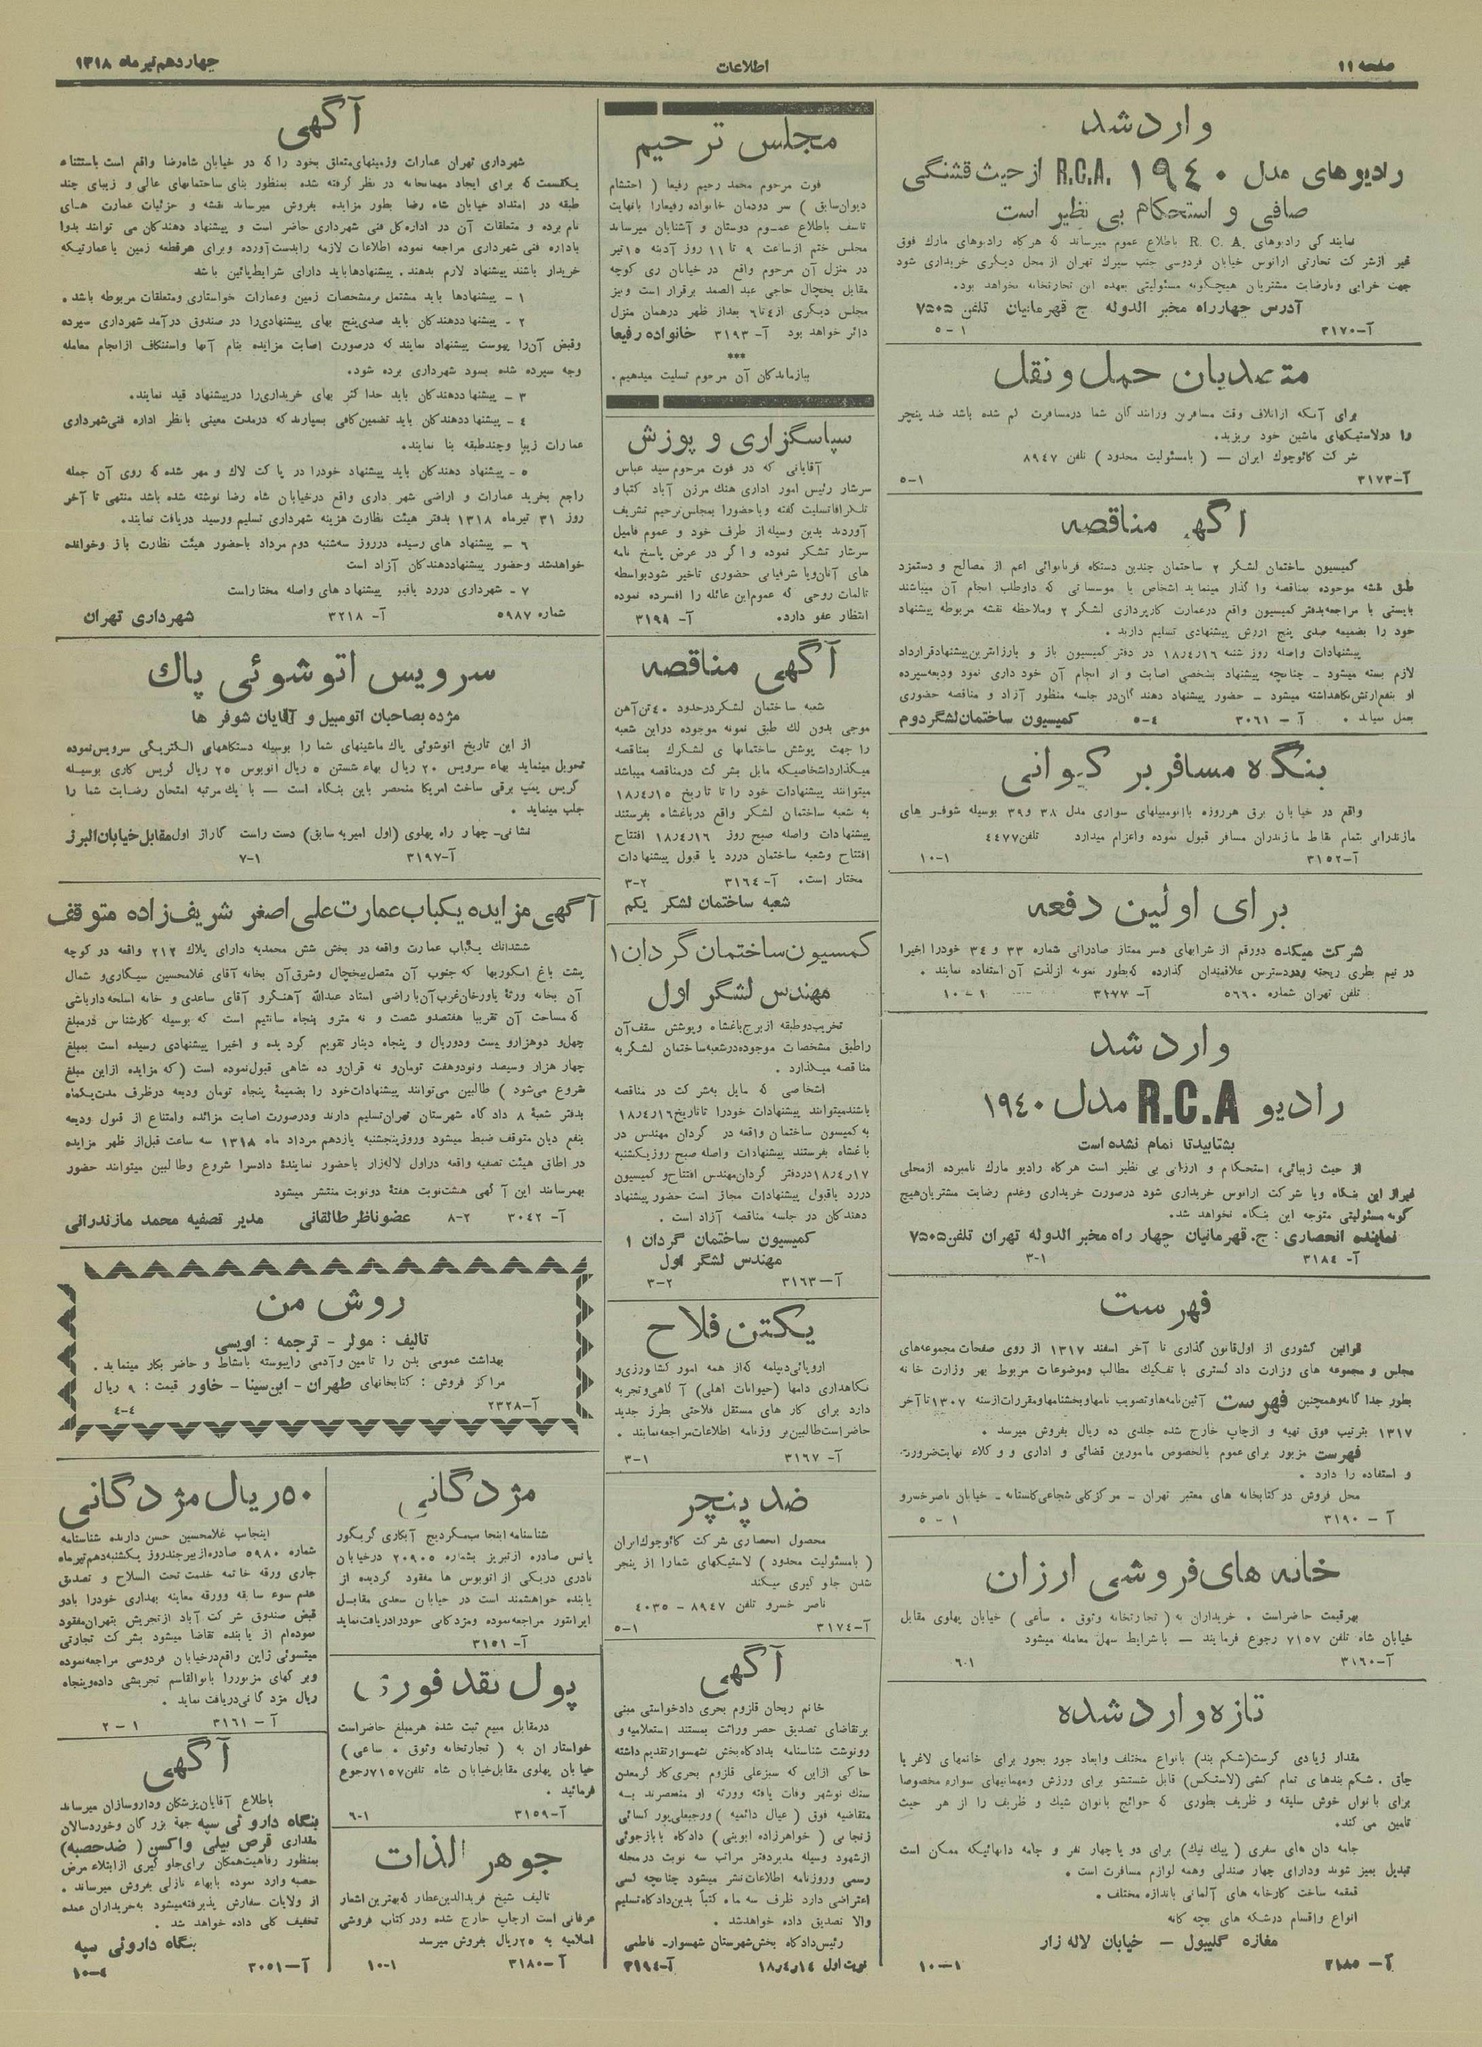 صفحه ۱۱
اطلاعات
چهاردهم تیر ماه ۱۳۱۸
وارد شد
رادیوهای مدل ۱۹۴۰ R.C.A. از حیث قشنگی
صافی و استحکام بی نظیر است
نمایندگی رادیوهای R. C. A. باطلاع عموم میرساند که هرگاه رادیوهای مارك فوق
غیر از شرکت تجارتی ارانوس خیابان فردوسی جنب سیرك تهران از محل دیگری خریداری شود
جهت خرابی و نارضایت مشتریان هیچگونه مسئولیتی بعهده این تجارتخانه نخواهد بود.
آدرس چهارراه مخبر الدوله ج قهرمانیان تلفن ۷۵۰۵
آ-۳۱۷۰ ۱-۵
متصدیان حمل و نقل
برای آنکه از اتلاف وقت مسافرین و رانندگان شما در مسافرت کم شده باشد ضد پنچر
را در لاستیکهای ماشین خود بریزید.
شرکت کائوچوك ایران — (بامسئولیت محدود) تلفن ۸۹۴۷
آ-۳۱۷۳ ۱-۵
آگهی مناقصه
کمیسیون ساختمان لشگر ۲ ساختمان چندین دستگاه فرنانوائی اعم از مصالح و دستمزد
طبق نقشه موجوده بمناقصه واگذار مینماید اشخاص یا موسساتی که داوطلب انجام آن میباشند
بایستی با مراجعه بدفتر کمیسیون واقع در عمارت کارپردازی لشگر ۲ و ملاحظه نقشه مربوطه پیشنهاد
خود را بضمیمه صدی پنج ارزش پیشنهادی تسلیم دارند.
پیشنهادات واصله روز شنبه ۱۸ر۴ر۱۶ در دفتر کمیسیون باز و بارزانترین پیشنهاد قرارداد
لازم بسته میشود - چنانچه پیشنهاد بشخصی اصابت و از انجام آن خود داری نمود ودیعه سپرده
او بنفع ارتش نگاهداشته میشود - حضور پیشنهاد دهندگان در جلسه منظور آزاد و مناقصه حضوری
بعمل میاید. آ — ۳۰۶۱ ۴-۵ کمیسیون ساختمان لشگر دوم
بنگاه مسافر بر کیوانی
واقع در خیابان برق هر روزه با اتومبیلهای سواری مدل ۳۸ و ۳۹ بوسیله شوفرهای
مازندرانی بتمام نقاط مازندران مسافر قبول نموده و اعزام میدارد تلفن ۴۴۷۷
آ-۳۱۵۲ ۱-۱۰
برای اولین دفعه
شرکت میکده دو رقم از شرابهای دسر ممتاز صادراتی شماره ۳۳ و ۳۴ خود را اخیرا
در نیم بطری ریخته و در دسترس علاقمندان گذارده که بطور نمونه از لذت آن استفاده نمایند.
تلفن تهران شماره ۵۶۶۰ آ- ۳۱۷۷ ۱-۱۰
وارد شد
رادیو R.C.A مدل ۱۹۴۰
بشتابید تا تمام نشده است
از حیث زیبائی، استحکام و ارزانی بی نظیر است هرگاه رادیو مارك نامبرده از محلی
غیر از این بنگاه و یا شرکت ارانوس خریداری شود در صورت خریداری و عدم رضایت مشتریان هیچ
گونه مسئولیتی متوجه این بنگاه نخواهد شد.
نماینده انحصاری : ج. قهرمانیان چهار راه مخبر الدوله تهران تلفن ۷۵۰۵
آ- ۳۱۸۴ ۱-۳
فهرست
قوانین کشوری از اول قانون گذاری تا آخر اسفند ۱۳۱۷ از روی صفحات مجموعه‌های
مجلس و مجموعه های وزارت دادگستری با تفکیك مطالب و موضوعات مربوط بهر وزارت خانه
بطور جداگانه و همچنین فهرست آئین‌نامه‌ها و تصویب نامها و بخشنامها و مقررات از سنه ۱۳۰۷ تا آخر
۱۳۱۷ بترتیب فوق تهیه و از چاپ خارج شده جلدی ده ریال بفروش میرسد.
فهرست مزبور برای عموم بالخصوص مامورین قضائی و اداری و وکلاء نهایت ضرورت
و استفاده را دارد.
محل فروش در کتابخانه های معتبر تهران - مرکز کلی شجاعی گلستانه - خیابان ناصر خسرو
آ — ۳۱۹۰ ۱-۵
خانه های فروشی ارزان
بهر قیمت حاضر است. خریداران به (تجارتخانه وثوق. ساعی) خیابان پهلوی مقابل
خیابان شاه تلفن ۷۱۵۷ رجوع فرمایند — با شرایط سهل معامله میشود
آ-۳۱۶۰ ۱-۶
تازه وارد شده
مقدار زیادی کرست (شکم بند) بانواع مختلف و ابعاد جور بجور برای خانمهای لاغر یا
چاق. شکم بندهای تمام کشی (لاستکس) قابل شستشو برای ورزش و مهمانیهای سواره مخصوصا
برای بانوان خوش سلیقه و ظریف بطوری که حوائج بانوان شیك و ظریف را از هر حیث
تامین می کند.
جامه دان های سفری (پیك نیك) برای دو یا چهار نفر و جامه دانهائیکه ممکن است
تبدیل بمیز شوند و دارای چهار صندلی و همه لوازم مسافرت است.
قمقمه ساخت کارخانه های آلمانی باندازه مختلف.
انواع و اقسام درشکه های بچه گانه
مغازه گلیپول — خیابان لاله زار
آ- ۳۱۸۵ ۱-۱۰
مجلس ترحیم
فوت مرحوم محمد رحیم رفیعا (احتشام
دیوان سابق) سر دودمان خانواده رفیعا را بانهایت
تاسف باطلاع عموم دوستان و آشنایان میرساند
مجلس ختم از ساعت ۹ تا ۱۱ روز آدینه ۱۵ تیر
در منزل آن مرحوم واقع در خیابان ری کوچه
مقابل یخچال حاجی عبد الصمد برقرار است و نیز
مجلس دیگری از ۴ تا ۶ بعد از ظهر در همان منزل
دائر خواهد بود آ- ۳۱۹۳ خانواده رفیعا
***
ببازماندگان آن مرحوم تسلیت میدهیم.
سپاسگزاری و پوزش
آقایانی که در فوت مرحوم سید عباس
سرشار رئیس امور اداری هنك مرزن آباد کتبا و
تلگرافا تسلیت گفته و یا حضورا بمجلس ترحیم تشریف
آوردند بدین وسیله از طرف خود و عموم فامیل
سرشار تشکر نموده و اگر در عرض پاسخ نامه
های آنان و یا شرفیابی حضوری تاخیر شود بواسطه
تالمات روحی که عموم این عائله را افسرده نموده
انتظار عفو دارد. آ- ۳۱۹۹
آگهی مناقصه
شعبه ساختمان لشکر در حدود ۴۰ تن آهن
موجی بدون لك طبق نمونه موجوده در این شعبه
را جهت پوشش ساختمانهای لشکرك بمناقصه
میگذارد اشخاصیکه مایل بشرکت در مناقصه میباشد
میتوانند پیشنهادات خود را تا تاریخ ۱۸ر۴ر۱۵
به شعبه ساختمان لشکر واقع در باغشاه بفرستند
پیشنهادات واصله صبح روز ۱۸ر۴ر۱۶ افتتاح
افتتاح و شعبه ساختمان در رد یا قبول پیشنهادات
مختار است. آ- ۳۱۶۴ ۲-۳
شعبه ساختمان لشکر یکم
کمسیون ساختمان گردان ۱
مهندس لشگر اول
تخریب دو طبقه از برج باغشاه و پوشش سقف آن
را طبق مشخصات موجوده در شعبه ساختمان لشگر به
مناقصه میگذارد.
اشخاصی که مایل بشرکت در مناقصه
باشند میتوانند پیشنهادات خود را تا تاریخ ۱۸ر۴ر۱۶
به کمیسون ساختمان واقعه در گردان مهندس در
باغشاه بفرستند پیشنهادات واصله صبح روز یکشنبه
۱۸ر۴ر۱۷ در دفتر گردان مهندس افتتاح و کمیسیون
در رد یا قبول پیشنهادات مجاز است حضور پیشنهاد
دهندگان در جلسه مناقصه آزاد است.
کمیسیون ساختمان گردان ۱
مهندس لشگر اول
آ—۳۱۶۳ ۲-۳
یکتن فلاح
اروپائی دیپلمه که از همه امور کشاورزی و
نگاهداری دامها (حیوانات اهلی) آگاهی و تجربه
دارد برای کار های مستقل فلاحتی بطرز جدید
حاضر است طالبین بروزنامه اطلاعات مراجعه نمایند.
آ- ۳۱۶۷ ۱-۳
ضد پنچر
محصول انحصاری شرکت کائوچوك ایران
(بامسئولیت محدود) لاستیکهای شما را از پنچر
شدن جلوگیری میکند
ناصر خسرو تلفن ۸۹۴۷ - ۴۰۳۵
آ-۳۱۷۴ ۱-۵
آگهی
خانم ریحان قلزوم بحری دادخواستی مبنی
بر تقاضای تصدیق حصر وراثت بمستند استعلامیه و
رونوشت شناسنامه بدادگاه بخش شهسوار تقدیم داشته
حاکی از این که سبزعلی قلزوم بحری کارگر معدن
سنك نوشهر وفات یافته و ورثه او منحصرند به
متقاضیه فوق (عیال دائمیه) و رجبعلی پور کسائی
زنجانی (خواهرزاده ابوینی) دادگاه با بازجوئی
از شهود وسیله مدیر دفتر مراتب سه نوبت در مجله
رسمی و روزنامه اطلاعات نشر میشود چنانچه کسی
اعتراضی دارد ظرف سه ماه کتباً بدین دادگاه تسلیم
والا تصدیق داده خواهد شد.
رئیس دادگاه بخش شهرستان شهسوار- فاطمی
نوبت اول ۱۸ر۴ر۱۴ آ-۳۱۹۴
آگهی
شهرداری تهران عمارات و زمینهای متعلق بخود را که در خیابان شاه رضا واقع است باستثناء
یکقسمت که برای ایجاد مهمانخانه در نظر گرفته شده بمنظور بنای ساختمانهای عالی و زیبای چند
طبقه در امتداد خیابان شاه رضا بطور مزایده بفروش میرساند نقشه و جزئیات عمارت های
نام برده و متعلقات آن در اداره کل فنی شهرداری حاضر است و پیشنهاد دهندگان می توانند بدوا
باداره فنی شهرداری مراجعه نموده اطلاعات لازمه را بدست آورده و برای هر قطعه زمین یا عمارتیکه
خریدار باشند پیشنهاد لازم بدهند. پیشنهادها باید دارای شرایط پائین باشد
۱ - پیشنهادها باید مشتمل بر مشخصات زمین و عمارات خواستاری و متعلقات مربوطه باشد.
۲ - پیشنهاد دهندگان باید صدی پنج بهای پیشنهادی را در صندوق درآمد شهرداری سپرده
و قبض آن را پیوست پیشنهاد نمایند که در صورت اصابت مزایده بنام آنها و استنکاف از انجام معامله
وجه سپرده شده بسود شهرداری برده شود.
۳ - پیشنهاد دهندگان باید حداکثر بهای خریداری را در پیشنهاد قید نمایند.
۴ - پیشنهاد دهندگان باید تضمین کافی بسپارند که در مدت معینی با نظر اداره فنی شهرداری
عمارات زیبا و چند طبقه بنا نمایند.
۵ - پیشنهاد دهندگان باید پیشنهاد خود را در پاکت لاك و مهر شده که روی آن جمله
راجع بخرید عمارات و اراضی شهر داری واقع در خیابان شاه رضا نوشته شده باشد منتهی تا آخر
روز ۳۱ تیرماه ۱۳۱۸ بدفتر هیئت نظارت هزینه شهرداری تسلیم و رسید دریافت نمایند.
۶ - پیشنهاد های رسیده در روز سه شنبه دوم مرداد با حضور هیئت نظارت باز و خوانده
خواهد شد و حضور پیشنهاد دهندگان آزاد است
۷ - شهرداری در رد یا قبول پیشنهاد های واصله مختار است
شماره ۵۹۸۷ آ- ۳۲۱۸ شهرداری تهران
سرویس اتوشوئی پاك
مژده بصاحبان اتومبیل و آقایان شوفر ها
از این تاریخ اتوشوئی پاك ماشینهای شما را بوسیله دستگاههای الکتریکی سرویس نموده
تحویل مینماید بهاء سرویس ۲۰ ریال بهاء شستن ۵ ریال اتوبوس ۲۵ ریال گریس کاری بوسیله
گریس پمپ برقی ساخت امریکا منحصر باین بنگاه است — با یك مرتبه امتحان رضایت شما را
جلب مینماید.
نشانی- چهار راه پهلوی (اول امیریه سابق) دست راست گاراژ اول مقابل خیابان البرز
آ-۳۱۹۷ ۱-۷
آگهی مزایده یکباب عمارت علی اصغر شریف زاده متوقف
ششدانك یکباب عمارت واقعه در بخش شش محمدیه دارای پلاك ۲۱۲ واقعه در کوچه
پشت باغ انگوریها که جنوب آن متصل بیخچال و شرق آن بخانه آقای غلامحسین سیگاری و شمال
آن بخانه ورثهٔ یاور خان غرب آن باراضی استاد عبدالله آهنگر و آقای ساعدی و خانه اسلحه دار باشی
که مساحت آن تقریبا هفتصد و شصت و نه متر و پنجاه سانتیم است که بوسیله کارشناس در مبلغ
چهل و دو هزار و بیست و دو ریال و پنجاه دینار تقویم گردیده و اخیرا پیشنهادی رسیده است بمبلغ
چهار هزار و سیصد و نود و هفت تومان و نه قران و ده شاهی قبول نموده است (که مزایده از این مبلغ
شروع می‌شود) طالبین می‌توانند پیشنهادات خود را بضمیمهٔ پنجاه تومان ودیعه در ظرف مدت یکماه
بدفتر شعبهٔ ۸ دادگاه شهرستان تهران تسلیم دارند و در صورت اصابت مزائده و امتناع از قبول ودیعه
بنفع دیان متوقف ضبط میشود و روز پنجشنبه یازدهم مرداد ماه ۱۳۱۸ سه ساعت قبل از ظهر مزایده
در اطاق هیئت تصفیه واقعه در اول لاله‌زار با حضور نمایندهٔ دادسرا شروع و طالبین میتوانند حضور
بهمرسانند این آگهی هشت نوبت هفتهٔ دو نوبت منتشر میشود
آ- ۳۰۴۲ ۲-۸ عضو ناظر طالقانی مدیر تصفیه محمد مازندرانی
روش من
تالیف : مولر - ترجمه : اویسی
بهداشت عمومی بدن را تامین و آدمی را پیوسته بانشاط و حاضر بکار مینماید.
مراکز فروش : کتابخانهای طهران - ابن‌سینا - خاور قیمت : ۹ ریال
آ-۲۳۲۸ ۴-۴
مژدگانی
شناسنامه اینجانب سگردیج آبکاری گریگور
یانس صادره از تبریز بشماره ۲۰۹۰۵ در خیابان
نادری در یکی از اتوبوس ها مفقود گردیده از
یابنده خواهشمند است در خیابان سعدی مقابل
ایرانتور مراجعه نموده و مژدگانی خود را دریافت نماید
آ- ۳۱۵۱
پول نقد فوری
در مقابل منبع ثبت شده هر مبلغ حاضر است
خواستاران به (تجارتخانه وثوق. ساعی)
خیابان پهلوی مقابل خیابان شاه تلفن ۷۱۵۷ رجوع
فرمائید.
آ-۳۱۵۹ ۱-۶
جوهر الذات
تالیف شیخ فرید الدین عطار که بهترین اشعار
عرفانی است از چاپ خارج شده و در کتاب فروشی
اسلامیه به ۲۵ ریال بفروش میرسد
آ- ۳۱۸۰ ۱-۱۰
۵۰ ریال مژدگانی
اینجانب غلامحسین حسن دارنده شناسنامه
شماره ۵۹۸۰ صادره از بیرجند روز یکشنبه دهم تیرماه
جاری ورقه خاتمه خدمت تحت السلاح و تصدیق
عدم سوء سابقه و ورقه معاینه بهداری خود را با دو
قبض صندوق شرکت آباد از تجریش بتهران مفقود
نموده‌ام از یابنده تقاضا میشود بشرکت تجارتی
میتسوئی ژاپن واقع در خیابان فردوسی مراجعه نموده
و برگهای مزبور را بابوالقاسم تجریشی داده و پنجاه
ریال مژدگانی دریافت نماید.
آ — ۳۱۶۱ ۱-۲
آگهی
باطلاع آقایان پزشکان و داروسازان میرساند
بنگاه داروئی سپه جهة بزرگان و خوردسالان
مقداری قرص بیلی واکسن (ضد حصبه)
بمنظور رفاهیت همگان برای جلوگیری از ابتلاء مرض
حصبه وارد نموده بابهاء نازلی بفروش میرساند.
از ولایات سفارش پذیرفته میشود بخریداران عمده
تخفیف کلی داده خواهد شد.
بنگاه داروئی سپه
آ—۳۰۵۱ ۴-۱۰